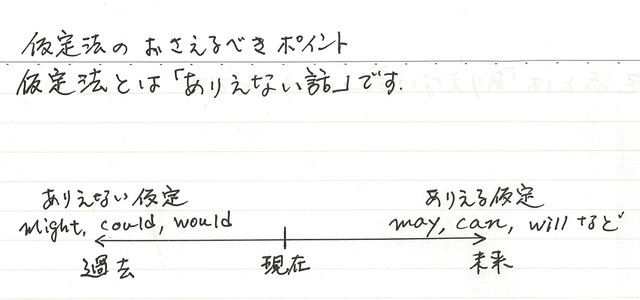 仮定法のおさえるべきポイント
仮定法とは「ありえない話」です.
ありえない仮定
might, could, would
ありえる仮定
may, can, will など
過去
現在
未来